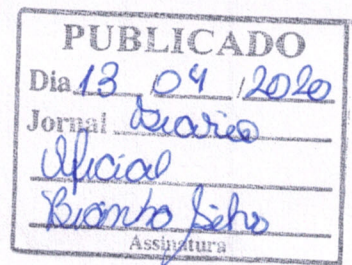 PUBLICADO
Dia 13 / 04 / 2020
Jornal Diário
Oficial
Assinatura